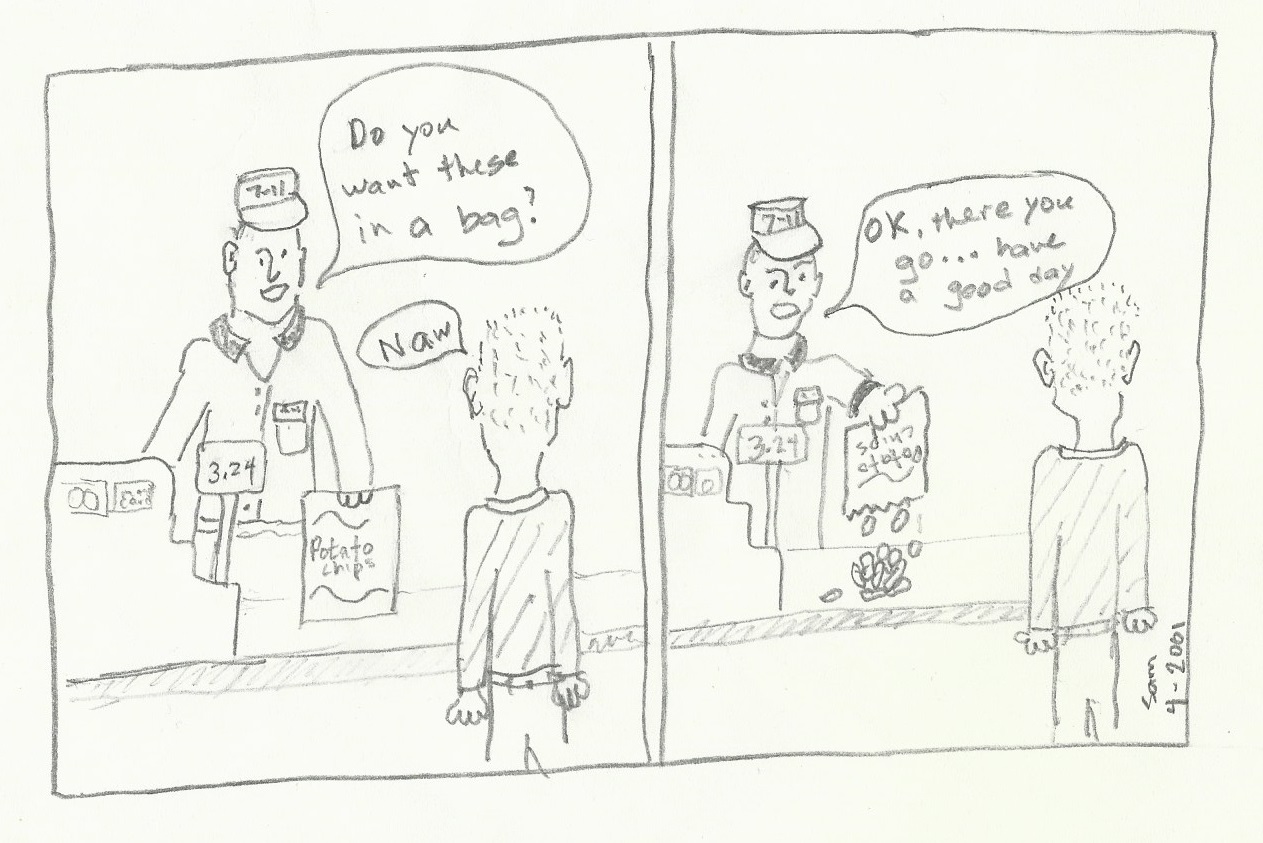 Do you
want these
in a bag?
7-11
Naw
3.24
Potato
chips
OK, there you
go... have
a good day
7-11
3.24
Potato
chips
Sam
4-2001